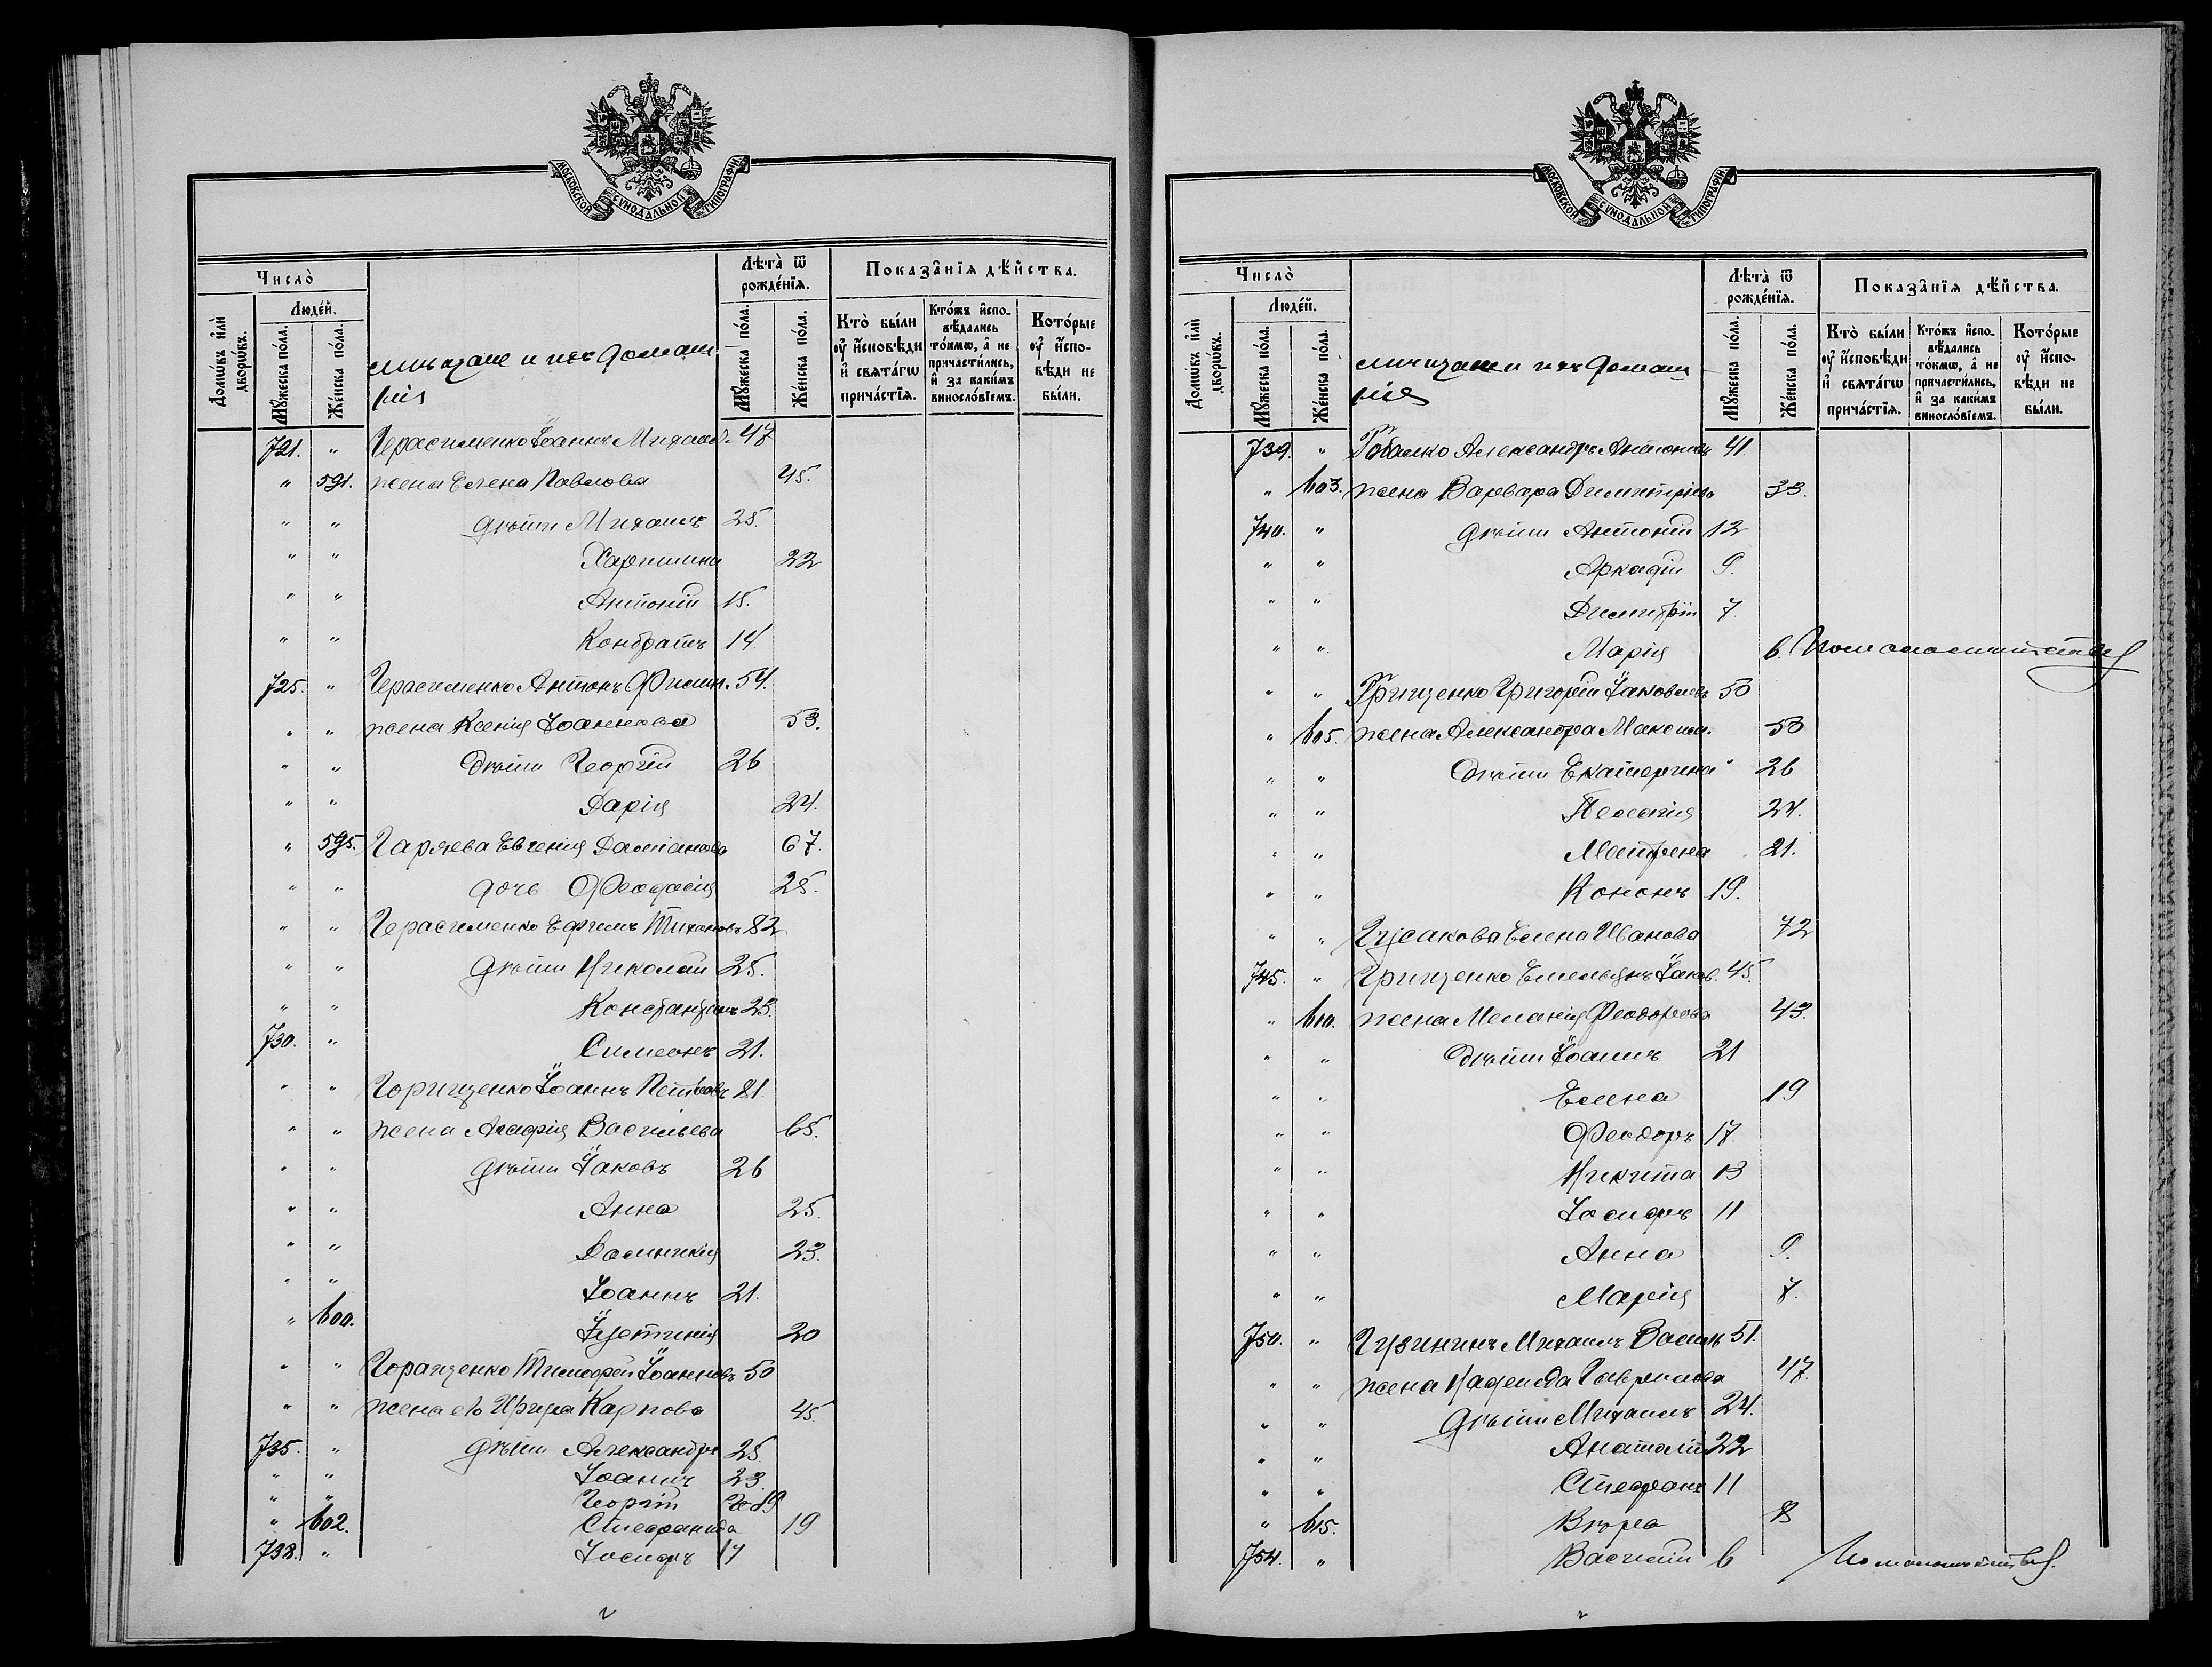 МОСКОВСКОЙ СѴНОДАЛЬНОЙ ТИПОГРАФІИ.
Число̀
Домѡ́въ и҆лѝ дворѡ́въ.
Люде́й.
Мꙋ́жеска по́ла.
Же́нска по́ла.
мѣщане и ихъ домаш
нія
Лѣта̀ ѿ рожде́нїѧ.
Мꙋ́жеска по́ла.
Же́нска по́ла.
Показа̂нїѧ дѣ́йства.
Кто̀ бы́ли ᲂу҆ и҆сповѣди и҆ свѧта́гѡ прича́стїѧ.
Кто́жъ и҆спо-вѣдались то́кмѡ, а҆ не причасти́лись, и҆ за каки́мъ винословїемъ.
Кото́рые ᲂу҆ и҆спо-вѣди не бы́ли.
721. " Герасименко Іоаннъ Михаил. 47
" 591. жена Елена Павлова 45.
" " дѣти Михаилъ 25.
" " Харитина 22
" " Антоній 15.
" " Кондратъ 14.
725. " Герасименко Антонъ Филип. 54.
" " жена Ксенія Іоаннова 53.
" " дѣти Георгій 26
" " Дарія 24.
" 595. Гаряева Евгенія Даміанова 67.
" " дочь Феодосія 25.
" " Герасименко Ефимъ Тихоновъ 82
" " дѣти Николай 25.
" " Константинъ 23.
730. " Симеонъ 21.
" " Горищенко Іоаннъ Петровъ 81.
" " жена Агафія Васильева 65.
" " дѣти Іаковъ 26
" " Анна 25.
" " Домникія 23.
" " Іоаннъ 21.
" 600. Іустинія 20
" " Горащенко Тимофей Іоанновъ 50
" " жена его Ирина Карпова 45.
735. " дѣти Александръ 25.
" " Іоаннъ 23.
" " Георгій 19
" 602. Стефанида 19
738. " Іосифъ 17
МОСКОВСКОЙ СѴНОДАЛЬНОЙ ТИПОГРАФІИ.
Число̀
Домѡ́въ и҆лѝ дворѡ́въ.
Люде́й.
Мꙋ́жеска по́ла.
Же́нска по́ла.
мѣщане и ихъ домаш
нія
Лѣта̀ ѿ рожде́нїѧ.
Мꙋ́жеска по́ла.
Же́нска по́ла.
Показа̂нїѧ дѣ́йства.
Кто̀ бы́ли ᲂу҆ и҆сповѣди и҆ свѧта́гѡ прича́стїѧ.
Кто́жъ и҆спо-вѣдались то́кмѡ, а҆ не причасти́лись, и҆ за каки́мъ винословїемъ.
Кото́рые ᲂу҆ и҆спо-вѣди не бы́ли.
739. " Александръ Антоновъ 41
" 603. жена Варвара Димитріева 33.
740. " дѣти Антоній 12
" " Аркадій 9.
" " Димитрій 7.
" " Марія 6. По малолѣтству
" " Грищенко Григорій Іаковлевъ 50
" 605. жена Александра Максим. 50
" " дѣти Екатерина 26
" " Пелагія 24.
" " Матрена 21.
" " Кононъ 19.
" " Гусакова Елена Иванова 72
745. " Грищенко Емельянъ Іаков. 45.
" 610. жена Меланія Феодорова 43.
" " дѣти Іоаннъ 21
" " Елена 19
" " Феодоръ 17.
" " Никита 13
" " Іосифъ 11
" " Анна 9.
" " Марія 7.
750. " Михаилъ Васил. 51.
" " жена Надежда Гаврилова 47.
" " дѣти Михаилъ 24.
" " Анатолій 22
" " Стефанъ 11
" 615. Вѣра 8
754. " Василій 6 По малолѣтству.